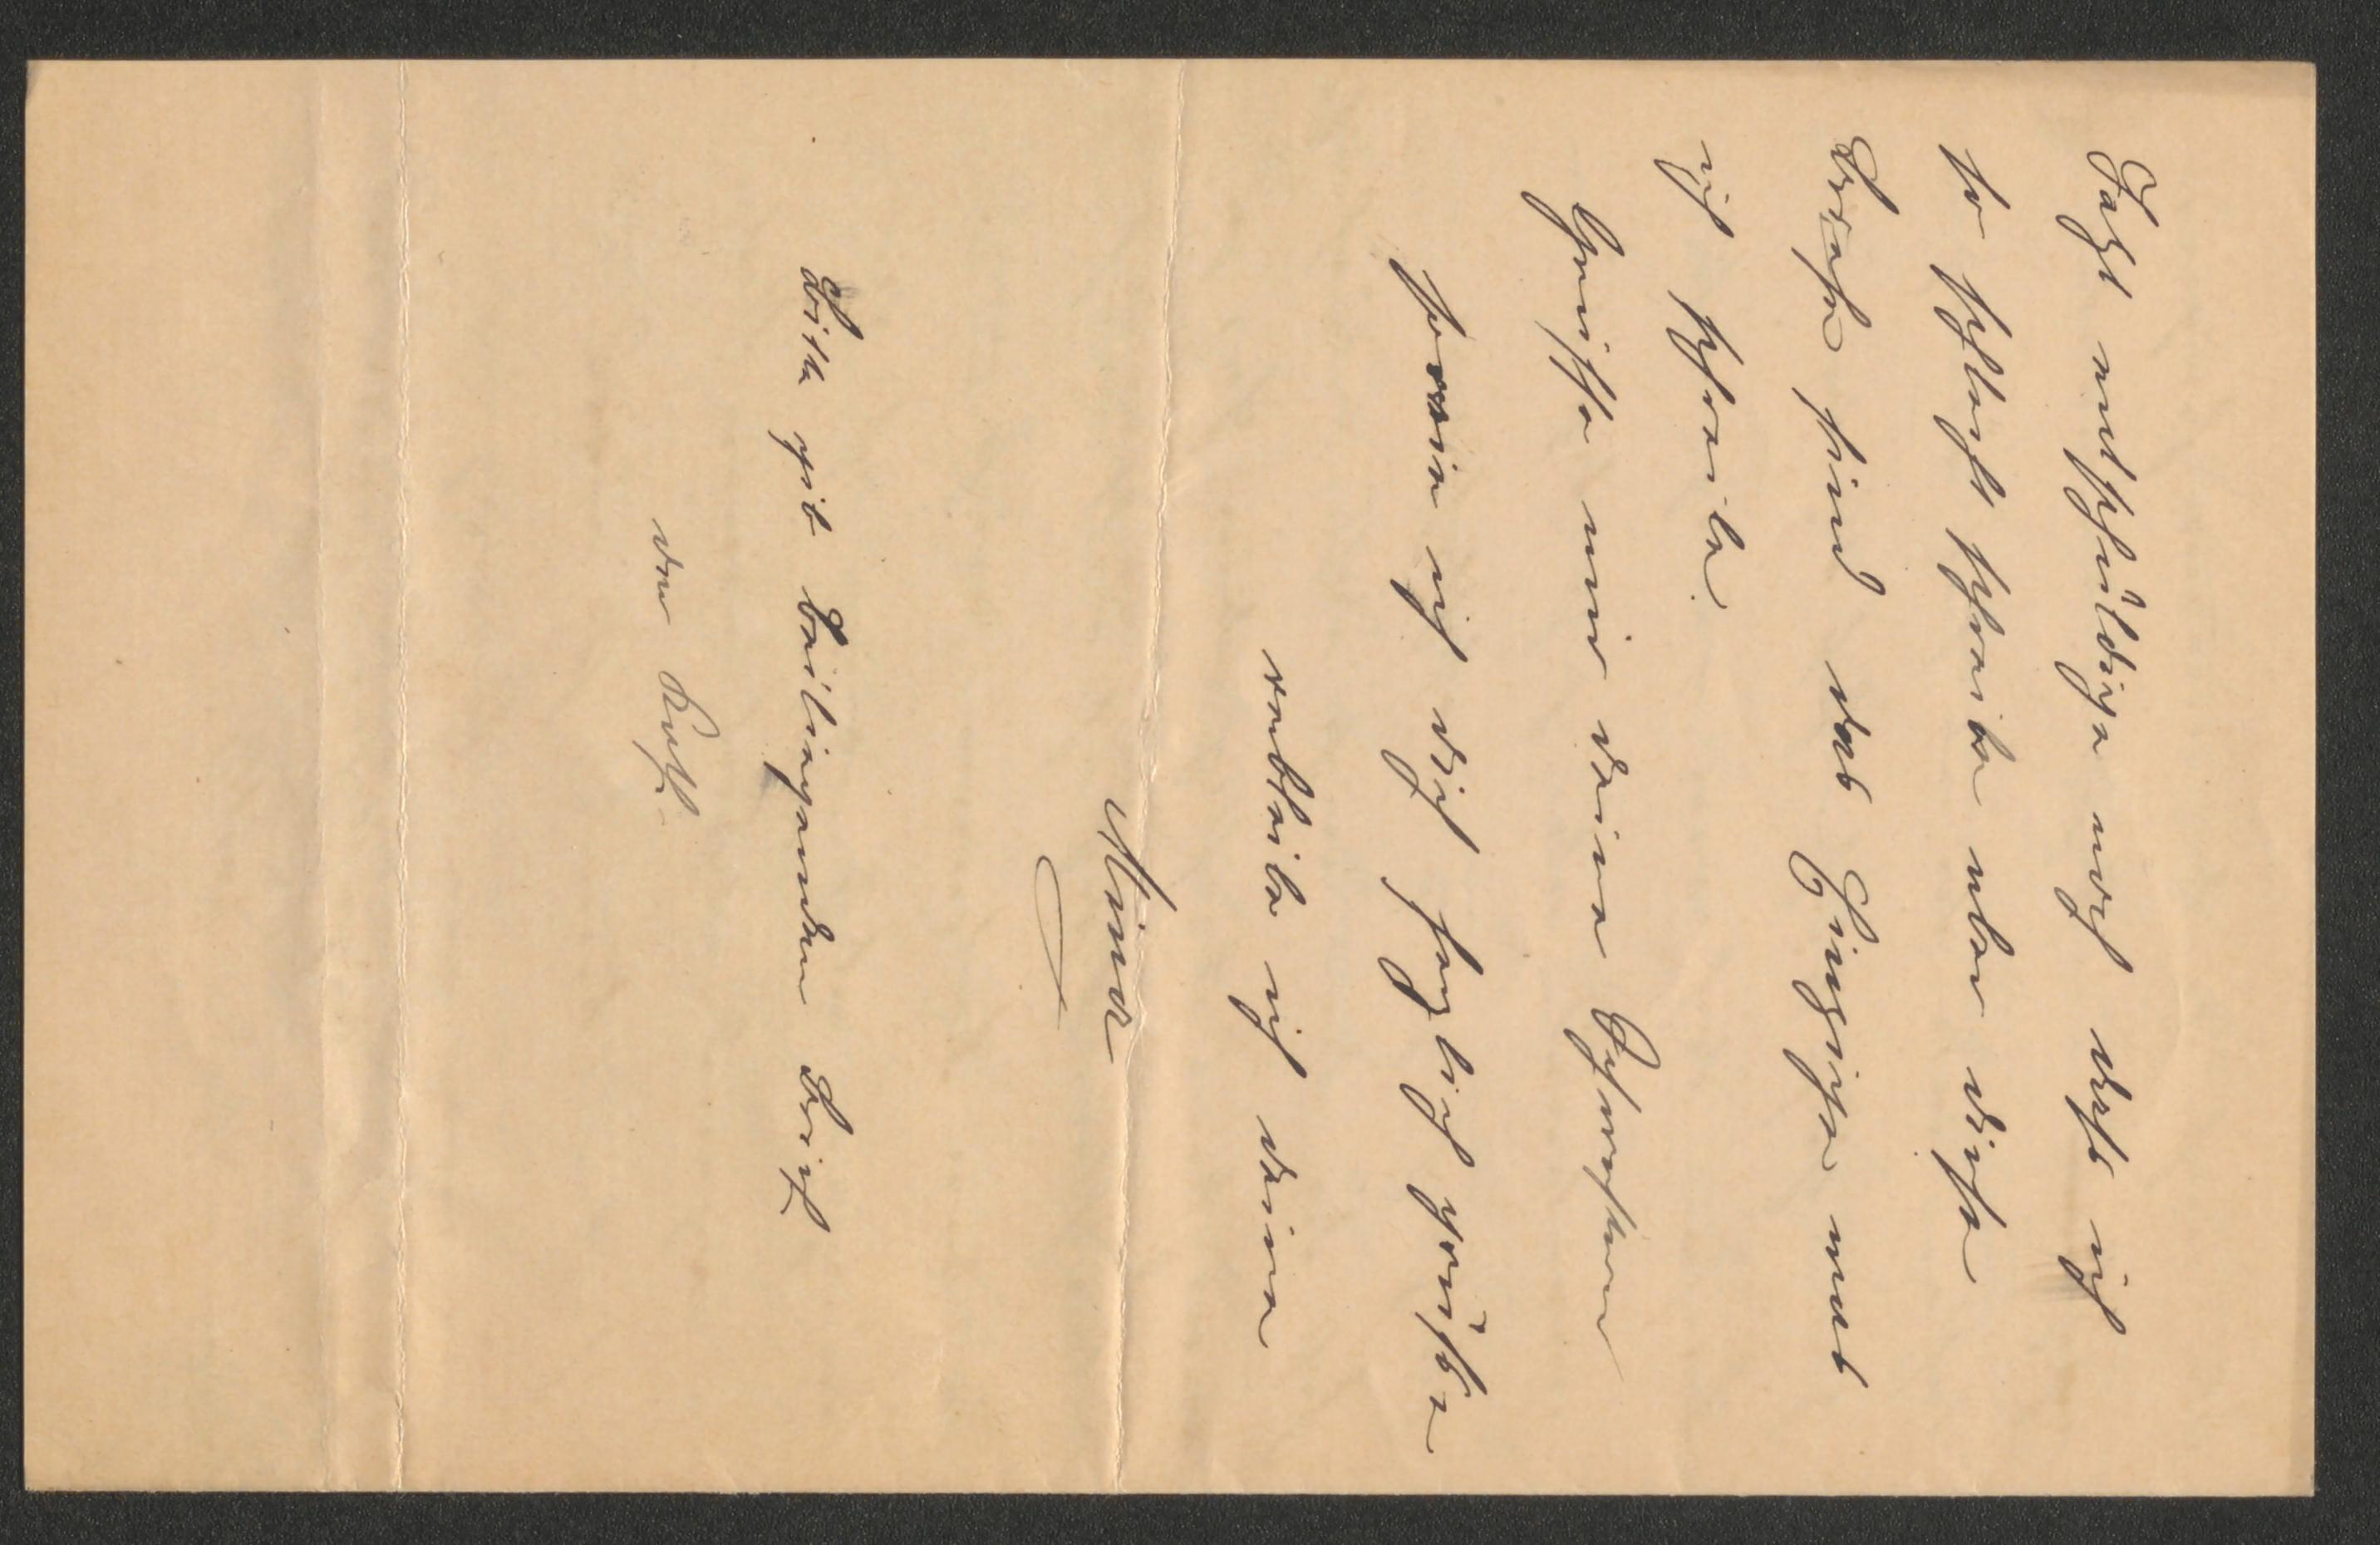 Jetzt entschuldige noch dass ich
so schlecht schreibe aber diese
Briefe sind das Einzige was
ich schreibe.
Grüsse mir deine Schwestern
sowie ich dich herzlich grüsse
verbleibe ich deine
Minna
Bitte gib beiliegenden Brief
den